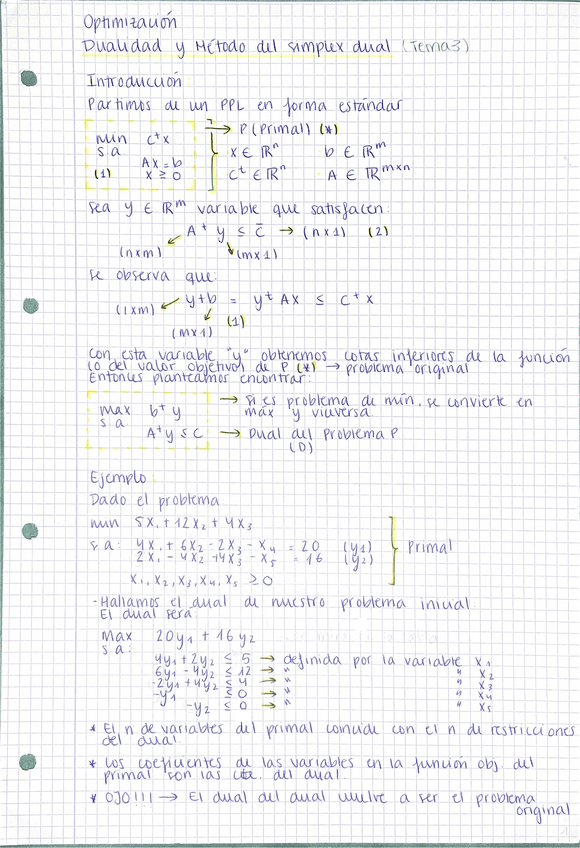 Optimización
Dualidad y Método del simplex dual (Tema 3)
Introducción
Partimos de un PPL en forma estándar
min cᵗx → P (Primal) (*)
s a x ∈ ℝⁿ b ∈ ℝᵐ
Ax = b
(1) x ≥ 0 cᵗ ∈ ℝⁿ A ∈ ℝᵐˣⁿ
sea y ∈ ℝᵐ variable que satisfacen:
Aᵗ y ≤ c̄ → (n x 1) (2)
(n x m) (m x 1)
se observa que:
(1 x m) yᵗb = yᵗ Ax ≤ cᵗ x
(m x 1) (1)
con esta variable "y" obtenemos cotas inferiores de la función
(o del valor objetivo) de P (*) → problema original
Entonces planteamos encontrar:
max bᵗ y → si es problema de mín. se convierte en
s a. máx y viceversa
Aᵗy ≤ c → Dual del Problema P
(D)
Ejemplo
Dado el problema
min 5x₁ + 12x₂ + 4x₃
s a: 4x₁ + 6x₂ - 2x₃ - x₄ = 20 (y1) Primal
2x₁ - 4x₂ + 4x₃ - x₅ = 16 (y2)
x₁, x₂, x₃, x₄, x₅ ≥ 0
- Hallamos el dual de nuestro problema inicial
El dual será:
Max 20y₁ + 16y₂
s a:
4y₁ + 2y₂ ≤ 5 → definida por la variable x₁
6y₁ - 4y₂ ≤ 12 → " " x₂
-2y₁ + 4y₂ ≤ 4 → " " x₃
-y₁ ≤ 0 → " " x₄
-y₂ ≤ 0 → " " x₅
* El n de variables del primal coincide con el n de restricciones
del dual
* Los coeficientes de las variables en la función obj. del
primal son las cte. del dual.
* OJO!!! → El dual del dual vuelve a ser el problema
original
1